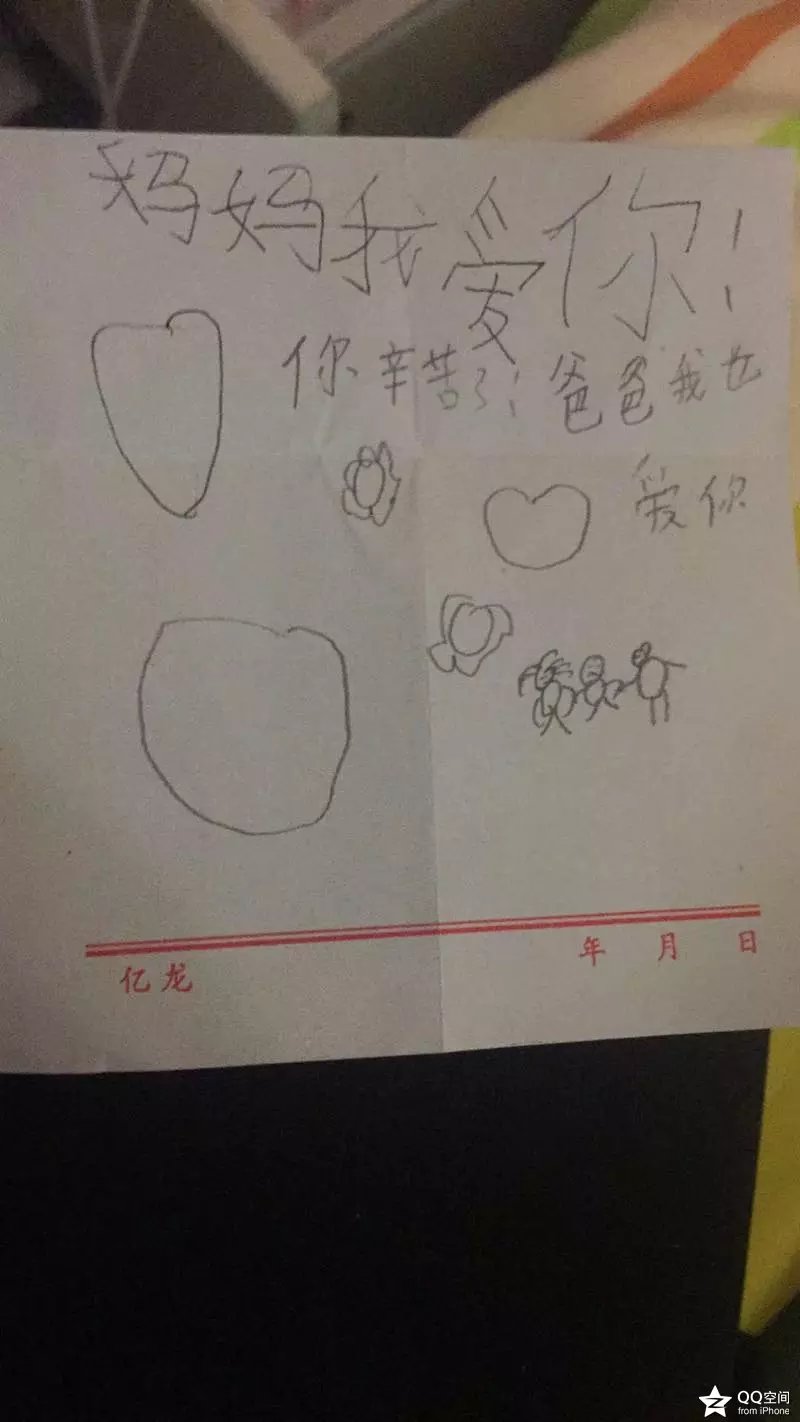 妈妈我爱你!
你辛苦了!爸爸我也
爱你
亿龙 年 月 日
QQ空间
from iPhone